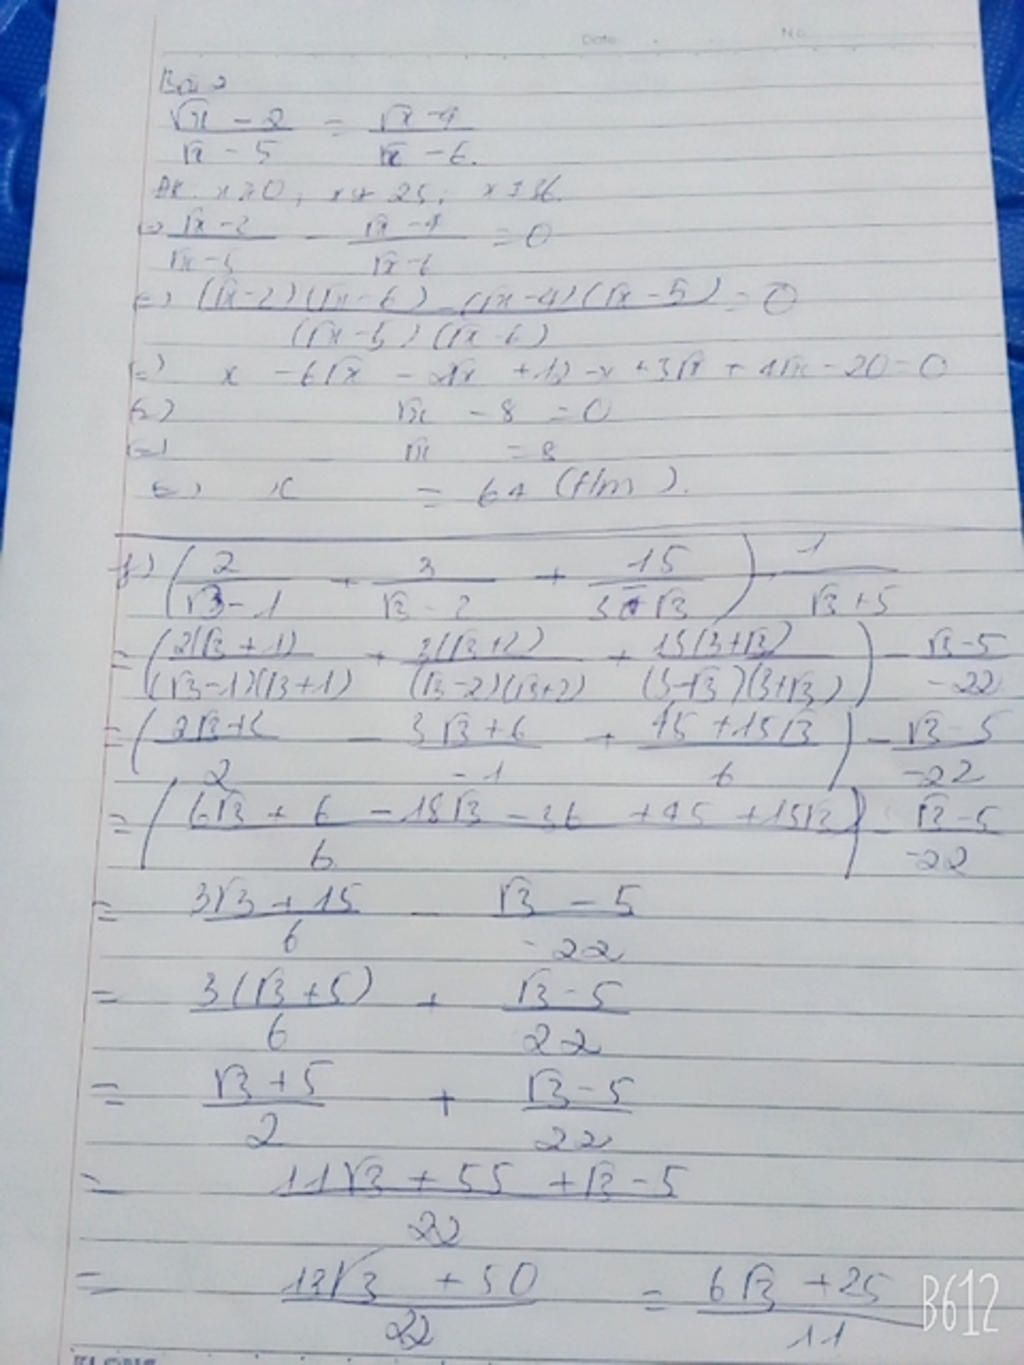 Date No
Bài 2
(√x - 2)/(√x - 5) = (√x - 4)/(√x - 6).
ĐK: x ≥ 0; x ≠ 25; x ≠ 36.
=> (√x - 2)/(√x - 5) - (√x - 4)/(√x - 6) = 0
<=> ((√x - 2)(√x - 6) - (√x - 4)(√x - 5))/((√x - 5)(√x - 6)) = 0
<=> x - 6√x - 2√x + 12 - x + 5√x + 4√x - 20 = 0
<=> √x - 8 = 0
<=> √x = 8
<=> x = 64 (t/m).
f) (2/(√3 - 1) + 3/(√3 - 2) + 15/(3 - √3)) - 1/(√3 + 5)
= (2(√3 + 1)/((√3 - 1)(√3 + 1)) + 3(√3 + 2)/((√3 - 2)(√3 + 2)) + 15(3 + √3)/((3 - √3)(3 + √3))) - (√3 - 5)/(-22)
= ((2√3 + 2)/2 - (3√3 + 6)/(-1) + (45 + 15√3)/6) - (√3 - 5)/(-22)
= ((6√3 + 6 - 18√3 - 36 + 45 + 15√3)/6) - (√3 - 5)/(-22)
= (3√3 + 15)/6 - (√3 - 5)/(-22)
= 3(√3 + 5)/6 + (√3 - 5)/22
= (√3 + 5)/2 + (√3 - 5)/22
= (11√3 + 55 + √3 - 5)/22
= (12√3 + 50)/22 = (6√3 + 25)/11
B612